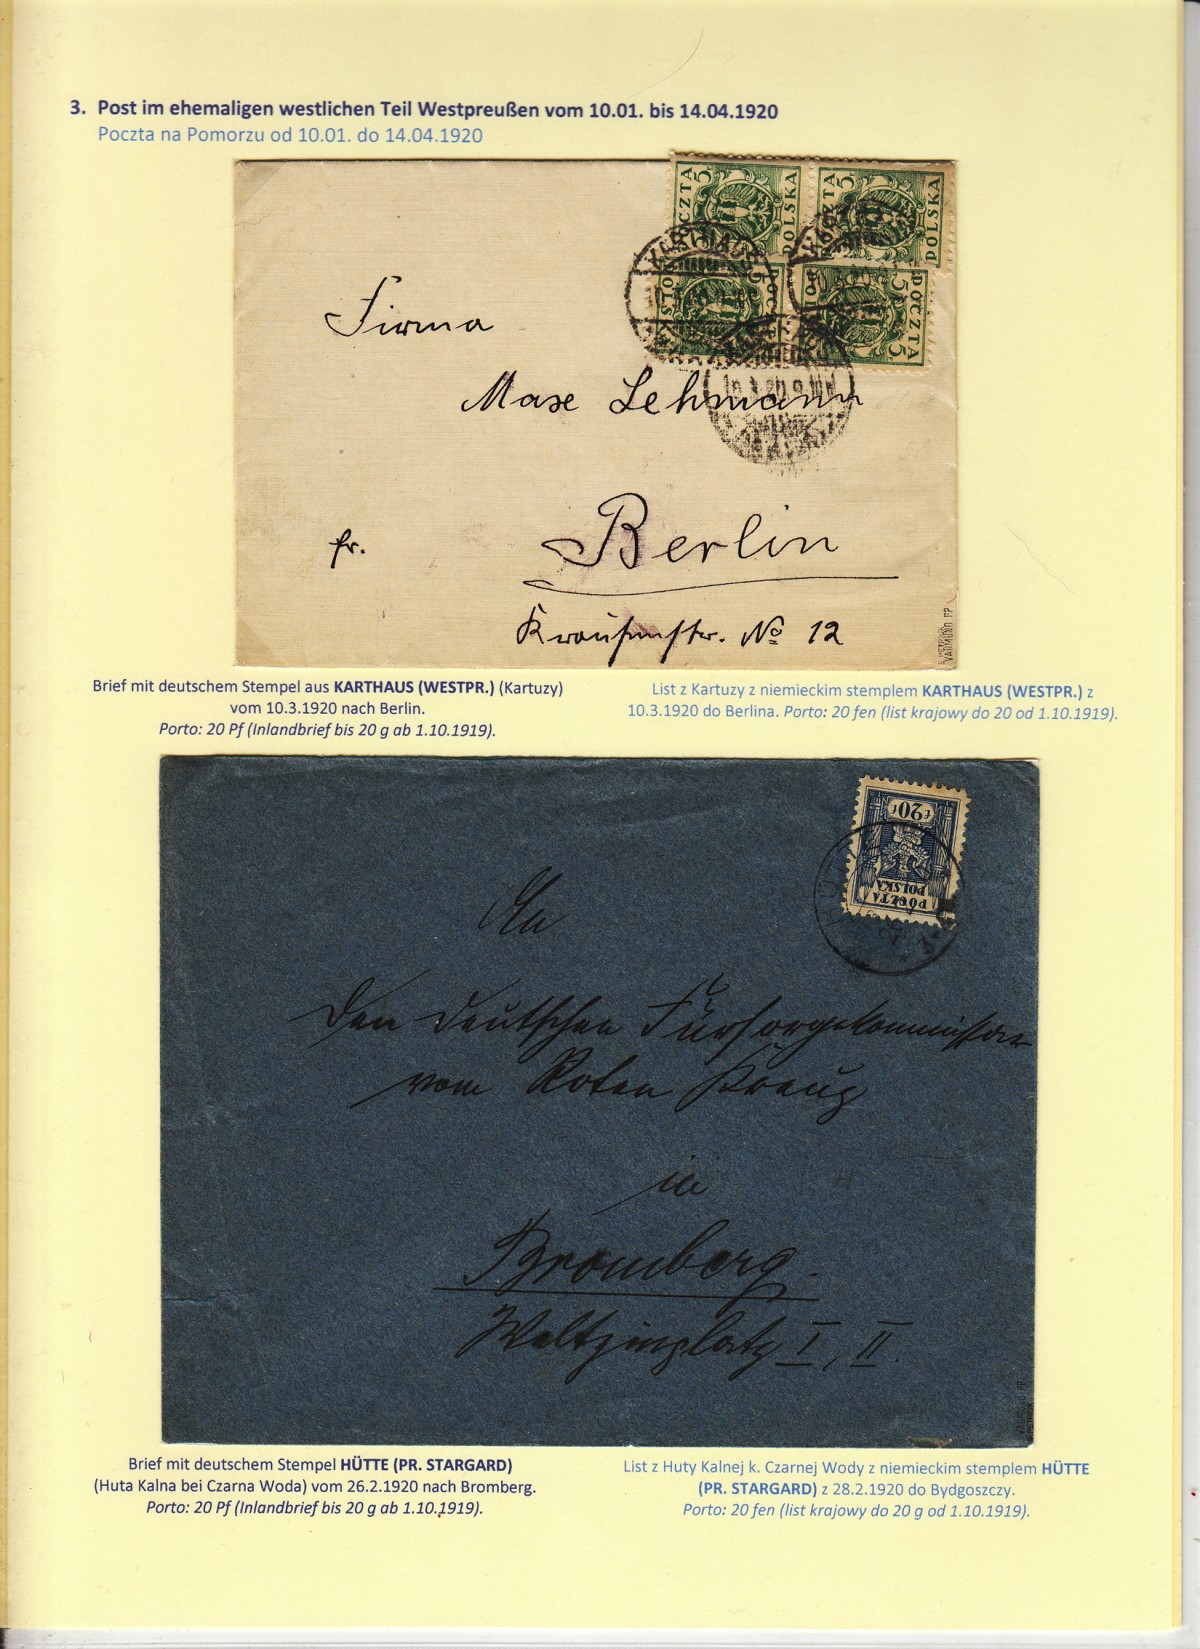 3. Post im ehemaligen westlichen Teil Westpreußen vom 10.01. bis 14.04.1920
Poczta na Pomorzu od 10.01. do 14.04.1920
POCZTA 5 POLSKA
POCZTA 5 POLSKA
POCZTA
POCZTA 5
KARTHAUS
Firma
Max Lehmann
Berlin
fr.
No 12
Brief mit deutschem Stempel aus KARTHAUS (WESTPR.) (Kartuzy)
vom 10.3.1920 nach Berlin.
Porto: 20 Pf (Inlandbrief bis 20 g ab 1.10.1919).
List z Kartuzy z niemieckim stemplem KARTHAUS (WESTPR.) z
10.3.1920 do Berlina. Porto: 20 fen (list krajowy do 20 od 1.10.1919).
F 20 F
POCZTA
POLSKA
An
den deutschen Fürsorgekommissar
vom Roten Kreuz
in
Bromberg.
Weltzinplatz I, II.
Brief mit deutschem Stempel HÜTTE (PR. STARGARD)
(Huta Kalna bei Czarna Woda) vom 26.2.1920 nach Bromberg.
Porto: 20 Pf (Inlandbrief bis 20 g ab 1.10.1919).
List z Huty Kalnej k. Czarnej Wody z niemieckim stemplem HÜTTE
(PR. STARGARD) z 28.2.1920 do Bydgoszczy.
Porto: 20 fen (list krajowy do 20 g od 1.10.1919).